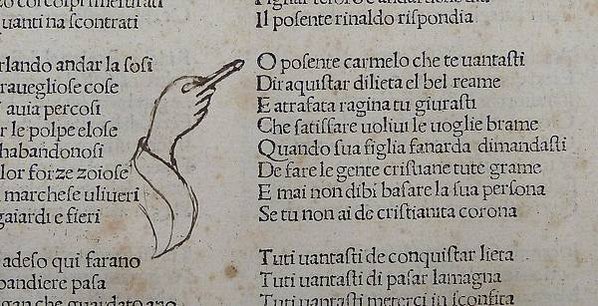 uanti na scontrati
rlando andar la sosi
rauegliose cose
auia percosi
r le polpe elose
habandonosi
lor forze zoiose
marchese uliueri
gaiardi e fieri
adeso qui farano
pandiere pasa
Il posente rinaldo rispondia
O posente carmelo che te uantasti
Diraquistar dilieta el bel reame
E atrafata ragina tu giurasti
Che satisfare uoliui le uoglie brame
Quando sua figlia fanarda dimandasti
De fare le gente cristiane tute grame
E mai non dibi basare la sua persona
Se tu non ai de cristianita corona
Tuti uantasti de conquistar lieta
Tuti uantasti di pasar lamagna
Tuti uantasti